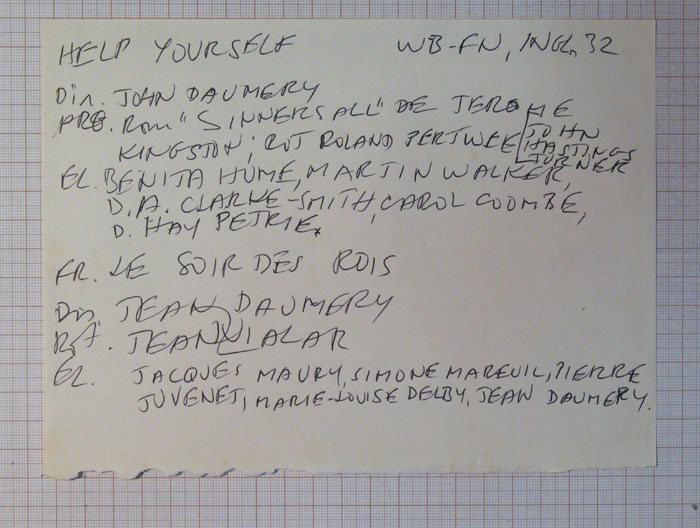 HELP YOURSELF WB-FN, INGL. 32
Dir. JOHN DAUMERY
PRO. Rom "SINNERS ALL" DE JEROME
KINGSTON; ROT ROLAND PERTWEE JOHN
HASTINGS
TURNER
EL. BENITA HUME, MARTIN WALKER,
D. A. CLARKE-SMITH, CAROL COOMBE,
D. HAY PETRIE.
FR. LE SOIR DES ROIS
Dir. JEAN DAUMERY
Rot. JEAN VIALAR
EL. JACQUES MAURY, SIMONE MAREUIL, PIERRE
JUVENET, MARIE-LOUISE DELBY, JEAN DAUMERY.